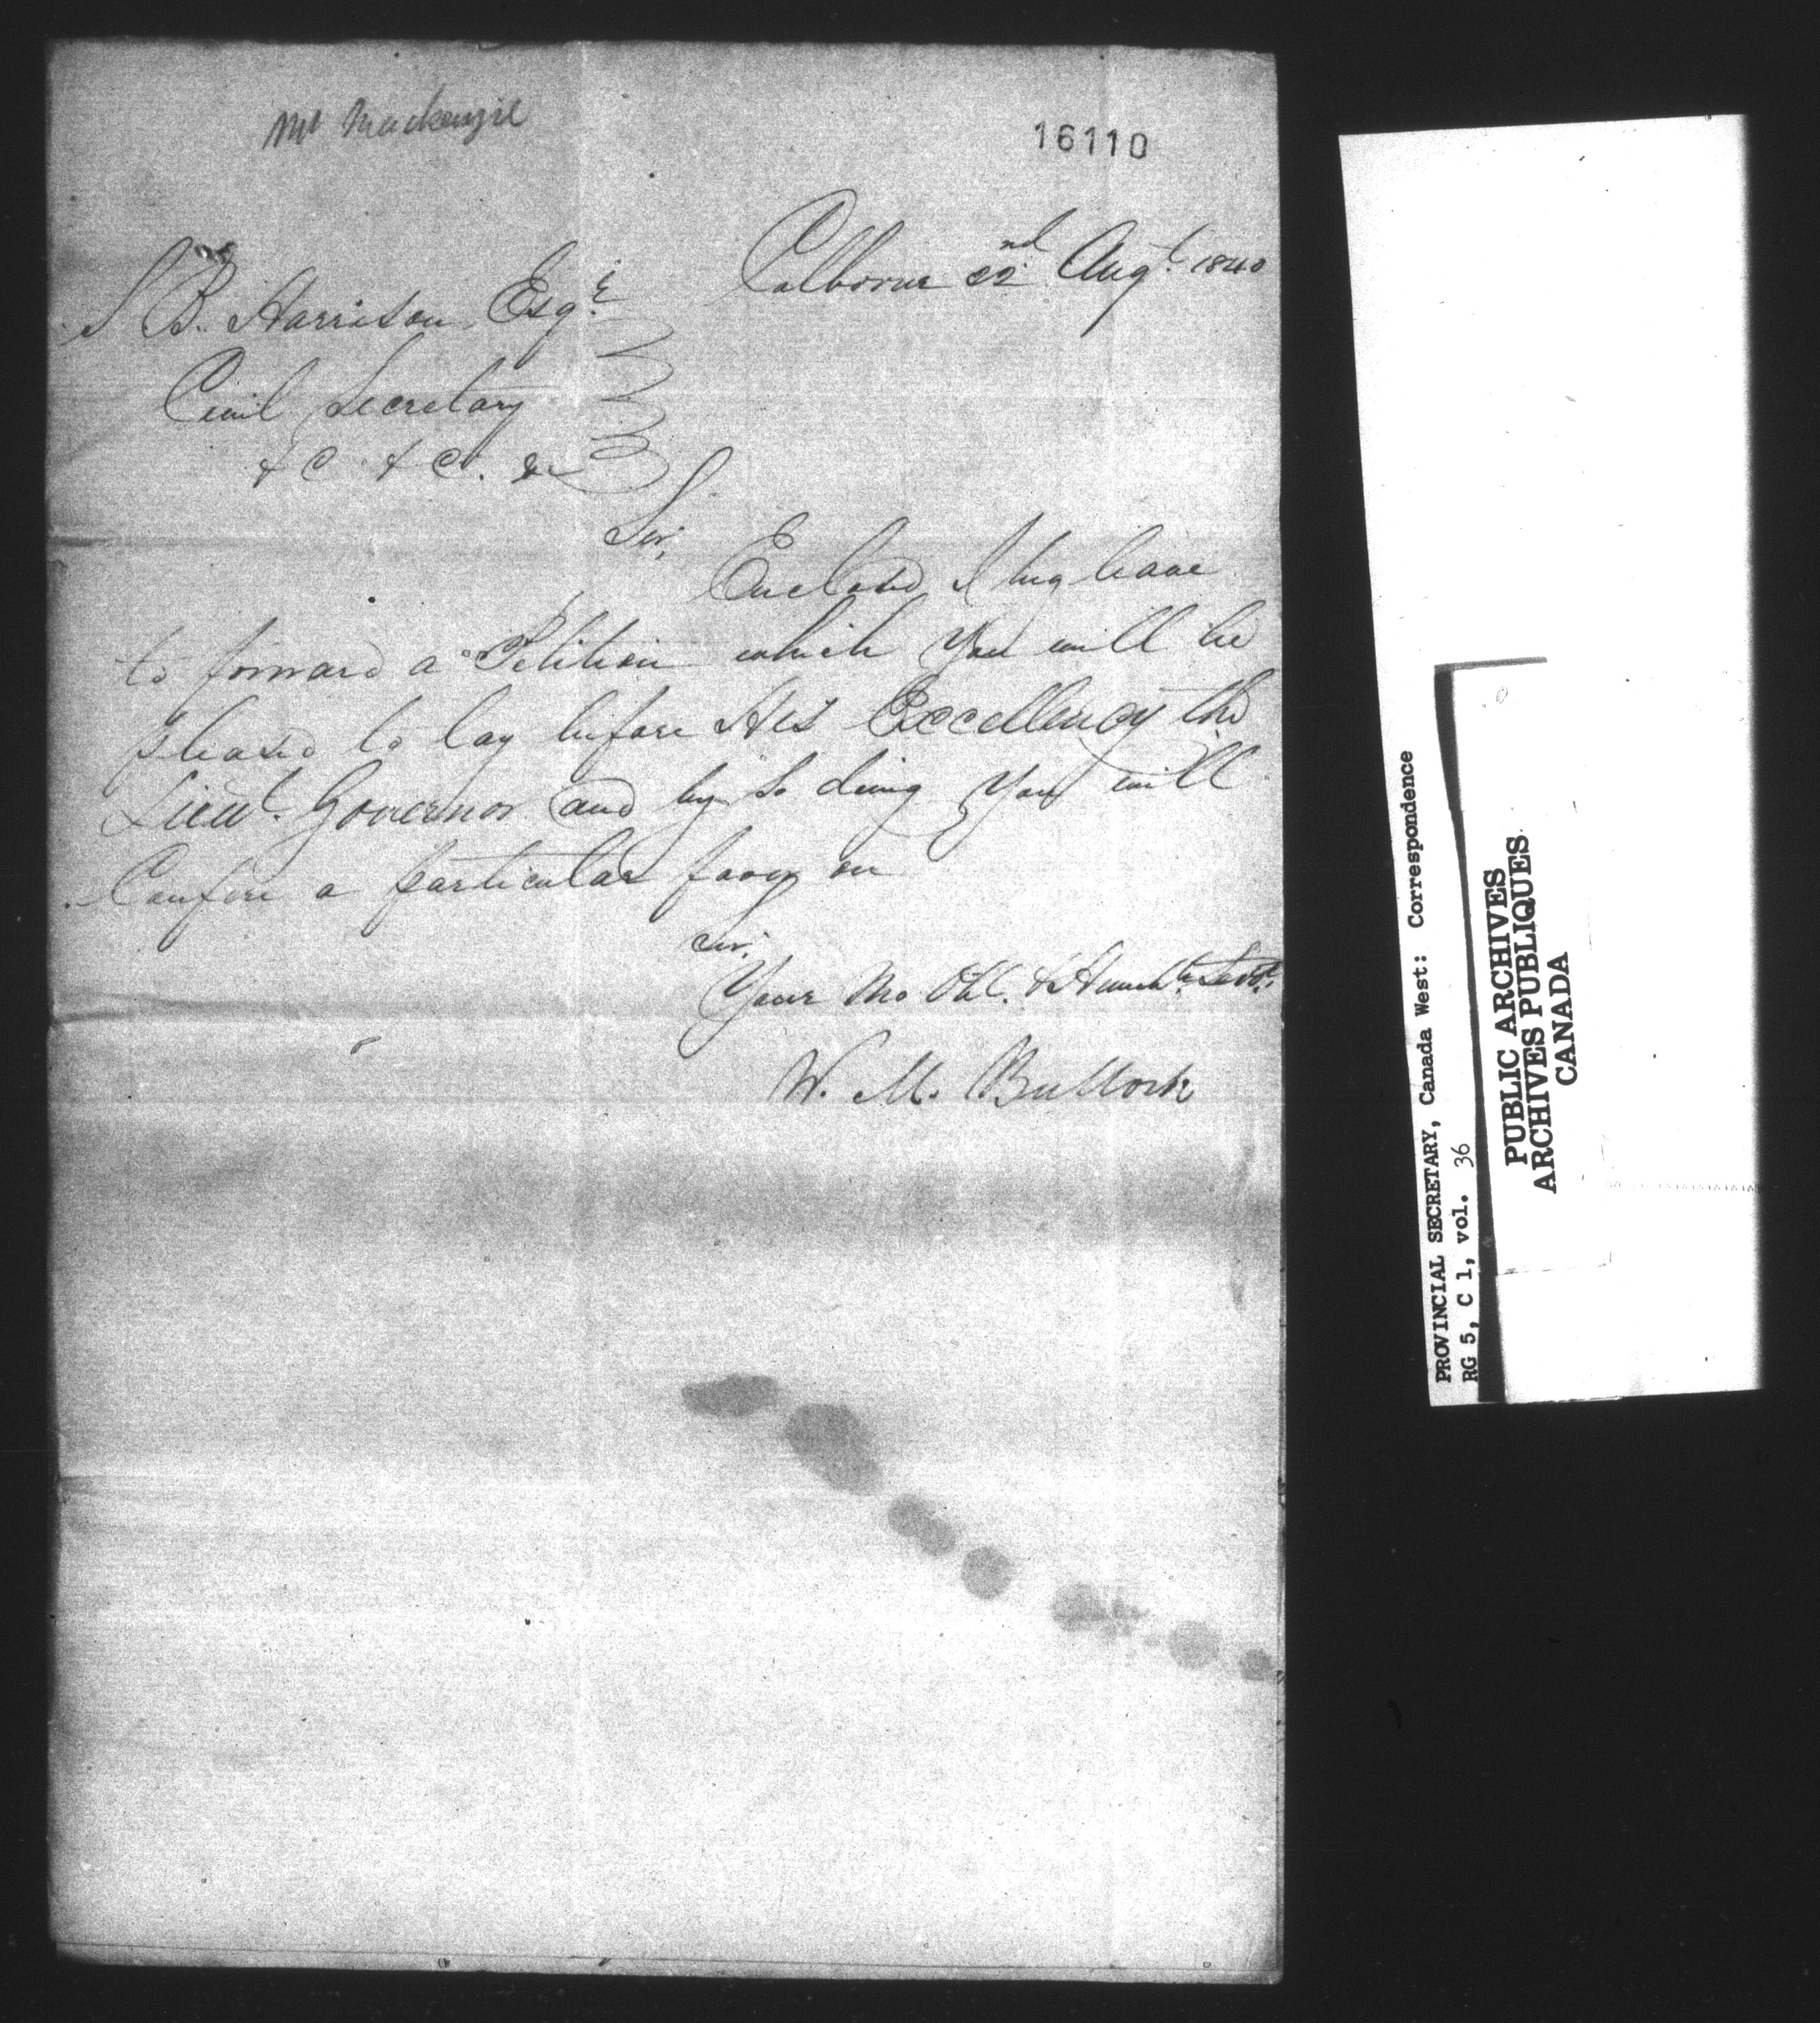 Mr Mackenzie
16110
Colborne 22nd Augt. 1840
S B. Harrison Esqr
Civil Secretary
&c &c. &c
Sir,
Enclosed I beg leave
to forward a Petition which you will be
pleased to lay before His Excellency the
Lieut. Governor and by so doing you will
Confire a particular favor on
Sir,
Your Mo Obt. & Humble Servt.
W. M. Bullock
PROVINCIAL SECRETARY, Canada West: Correspondence
RG 5, C 1, vol. 36
PUBLIC ARCHIVES
ARCHIVES PUBLIQUES
CANADA